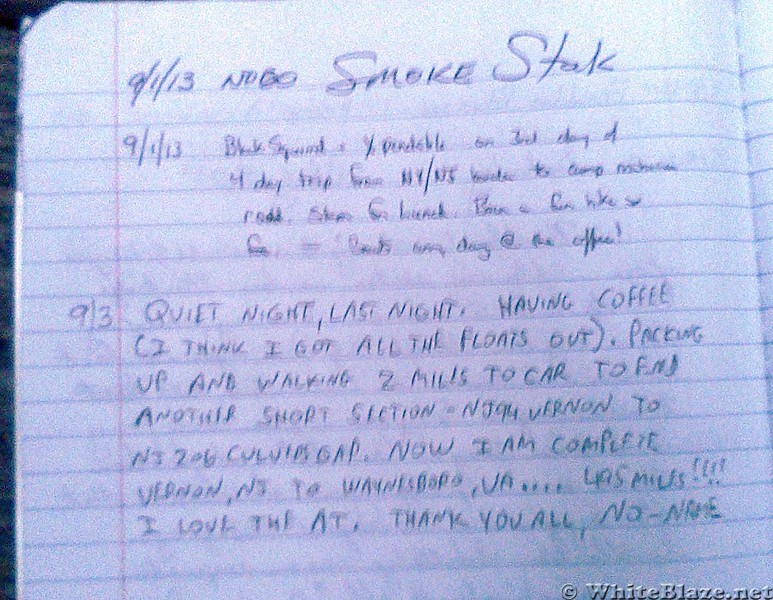 9/1/13 NOBO SMOKE Stak
9/1/13 Black Squirrel + on 3rd day of
4 day trip from NY/NJ border to camp
road. Stop for lunch. Been a fun hike so
far. = every day @ the office!
9/3 QUIET NIGHT, LAST NIGHT. HAVING COFFEE
(I THINK I GOT ALL THE FLOATS OUT). PACKING
UP AND WALKING 2 MILES TO CAR TO END
ANOTHER SHORT SECTION - NJ94 VERNON TO
NJ 206 CULVERS GAP. NOW I AM COMPLETE
VERNON, NJ TO WAYNESBORO, VA.... MILES!!!!
I LOVE THE AT. THANK YOU ALL, NO-NAME
© WhiteBlaze.net